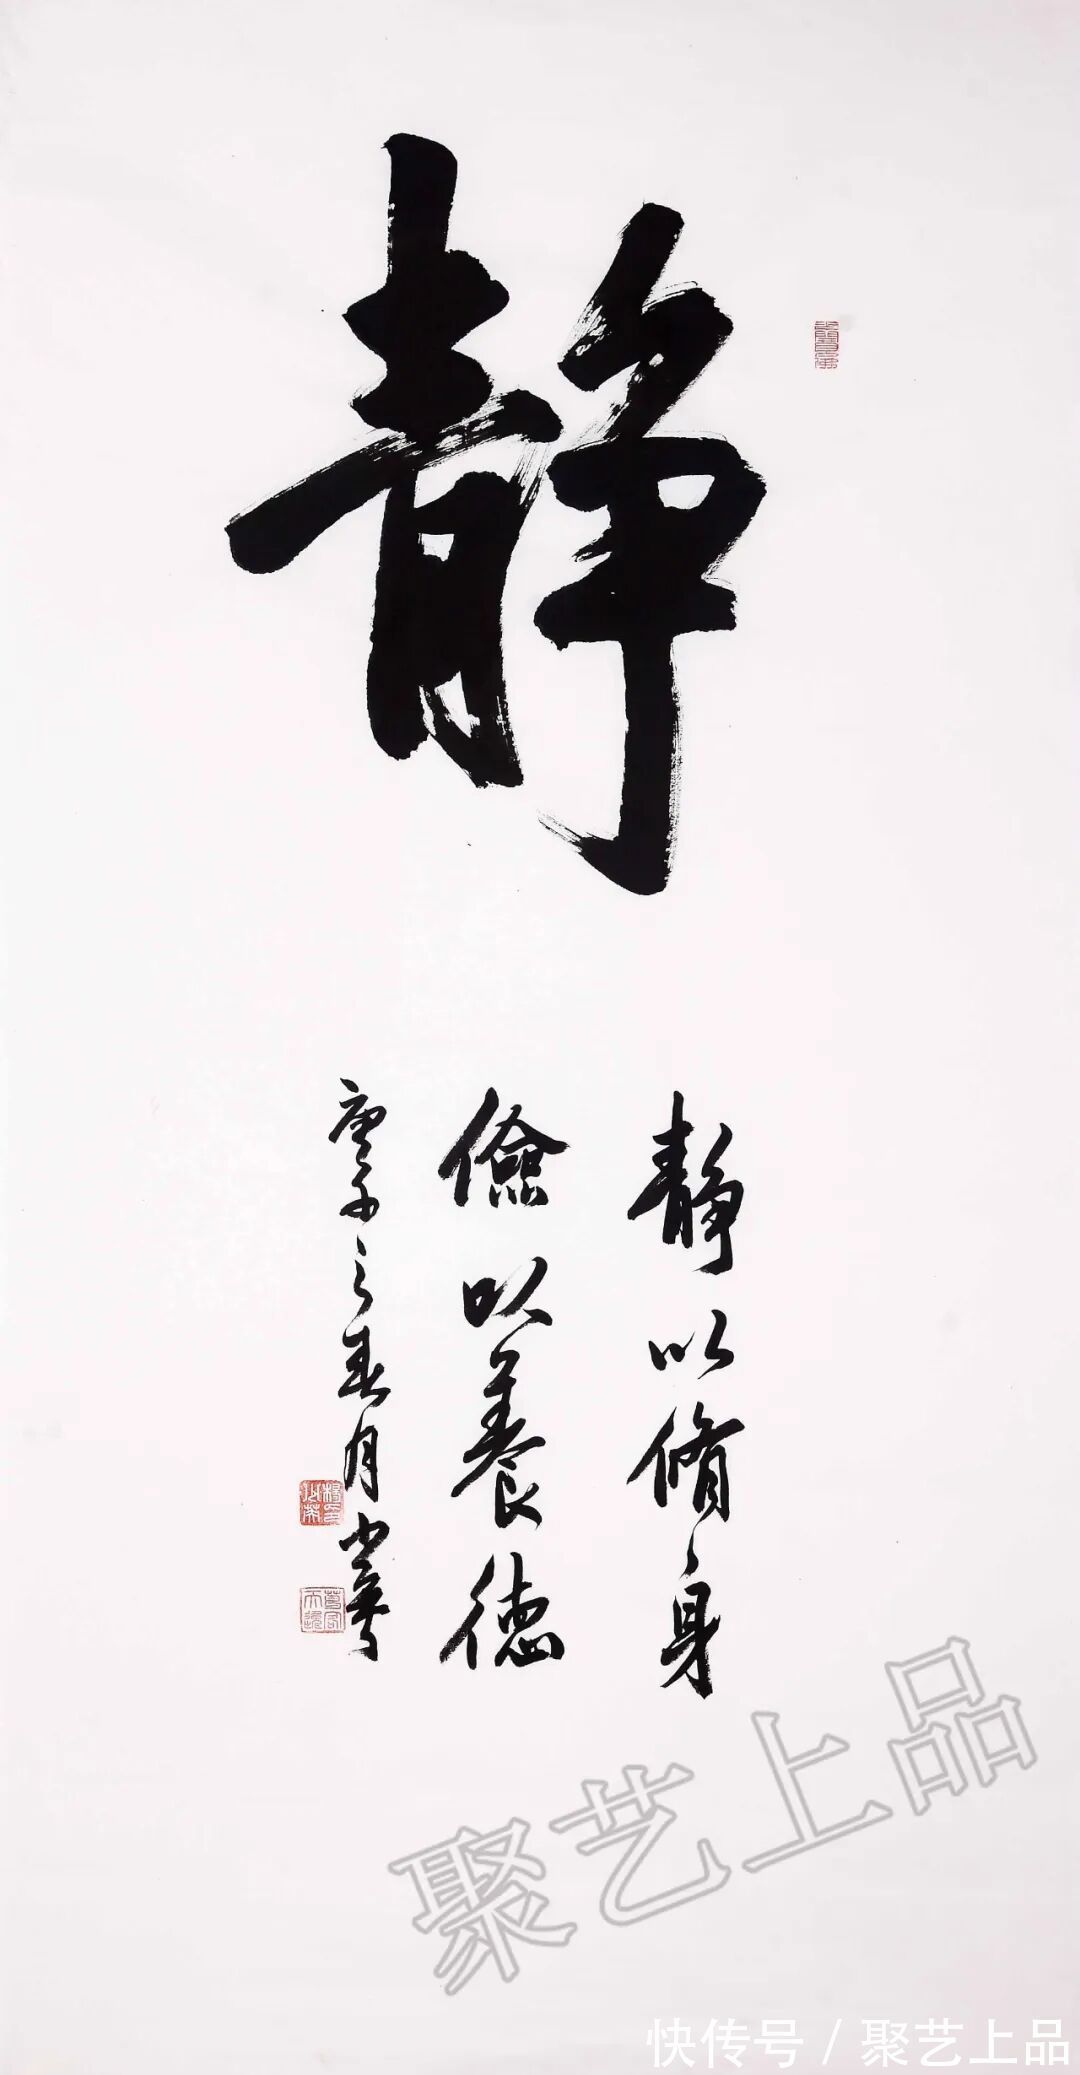 静
静以脩身
儉以養德
庚子之春月小英
聚艺上品
快传号 / 聚艺上品